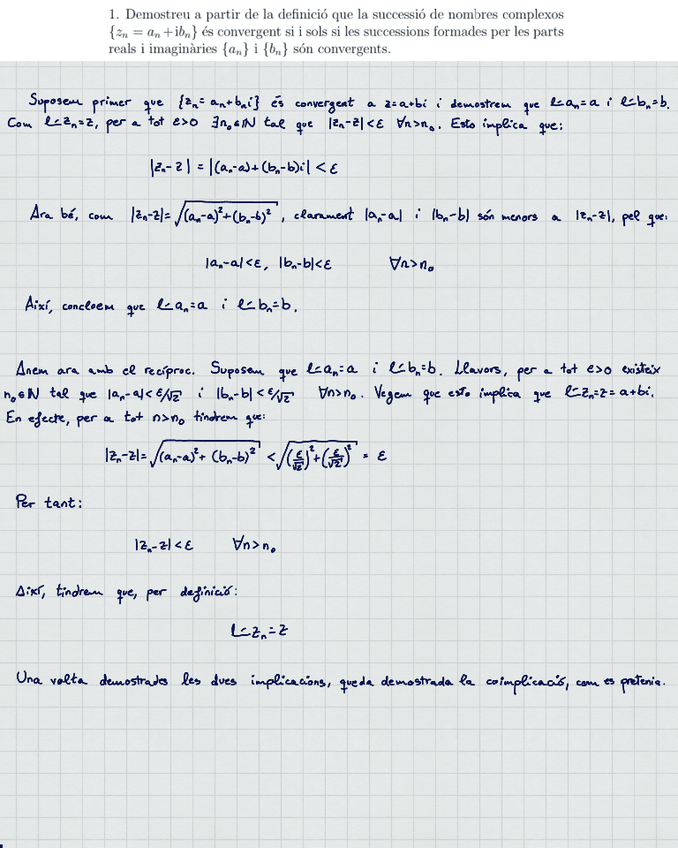 1. Demostreu a partir de la definició que la successió de nombres complexos
{zₙ = aₙ + ibₙ} és convergent si i sols si les successions formades per les parts
reals i imaginàries {aₙ} i {bₙ} són convergents.
Suposem primer que {zₙ = aₙ + bₙi} és convergent a z=a+bi i demostrem que lim aₙ=a i lim bₙ=b.
Com lim zₙ=z, per a tot ε>0 ∃n₀∈ℕ tal que |zₙ-z|<ε ∀n>n₀. Esto implica que:
|zₙ-z| = |(aₙ-a)+(bₙ-b)i| < ε
Ara bé, com |zₙ-z|=√((aₙ-a)²+(bₙ-b)²), clarament |aₙ-a| i |bₙ-b| són menors a |zₙ-z|, pel que:
|aₙ-a|<ε, |bₙ-b|<ε ∀n>n₀
Així, concloem que lim aₙ=a i lim bₙ=b.
Anem ara amb el recíproc. Suposem que lim aₙ=a i lim bₙ=b. Llavors, per a tot ε>0 existeix
n₀∈ℕ tal que |aₙ-a|<ε/√2 i |bₙ-b|<ε/√2 ∀n>n₀. Vegem que esto implica que lim zₙ=z=a+bi.
En efecte, per a tot n>n₀ tindrem que:
|zₙ-z|=√((aₙ-a)²+(bₙ-b)²) < √((ε/√2)²+(ε/√2)²) = ε
Per tant:
|zₙ-z|<ε ∀n>n₀
Així, tindrem que, per definició:
lim zₙ=z
Una volta demostrades les dues implicacions, queda demostrada la coimplicació, com es pretenia.